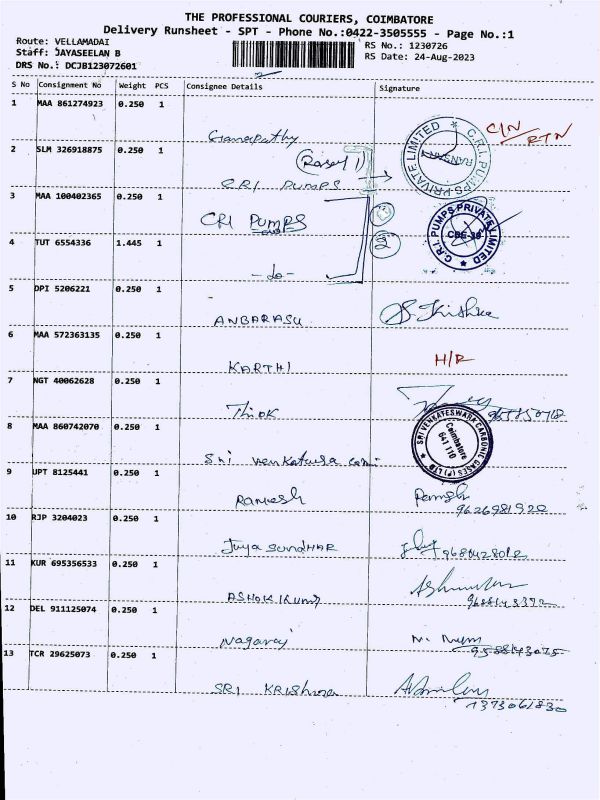 THE PROFESSIONAL COURIERS, COIMBATORE
Delivery Runsheet - SPT - Phone No.:0422-3505555 - Page No.:1
Route: VELLAMADAI
RS No.: 1230726
Staff: JAYASEELAN B
RS Date: 24-Aug-2023
DRS No.: DCJB123072601
S No Consignment No Weight PCS Consignee Details Signature
1 MAA 861274923 0.250 1
Ganapathy C/N RTN
2 SLM 326918875 0.250 1
CRI PUMPS
C.R.I. PUMPS PRIVATE LIMITED
3 MAA 100402365 0.250 1
CRI PUMPS
C.R.I. PUMPS PRIVATE LIMITED
4 TUT 6554336 1.445 1
-do-
5 DPI 5206221 0.250 1
ANBARASU
6 MAA 572363135 0.250 1
KARTHI H/R
7 NGT 40062628 0.250 1
8 MAA 860742070 0.250 1
Sri
SRI VENKATESWARA CARBONIC GASES (P) LTD
Coimbatore
641 110
9 UPT 8125441 0.250 1
Ramesh
10 RJP 3204023 0.250 1
11 KUR 695356533 0.250 1
12 DEL 911125074 0.250 1
Nagaraj
13 TCR 29625073 0.250 1
SRI KRIShna